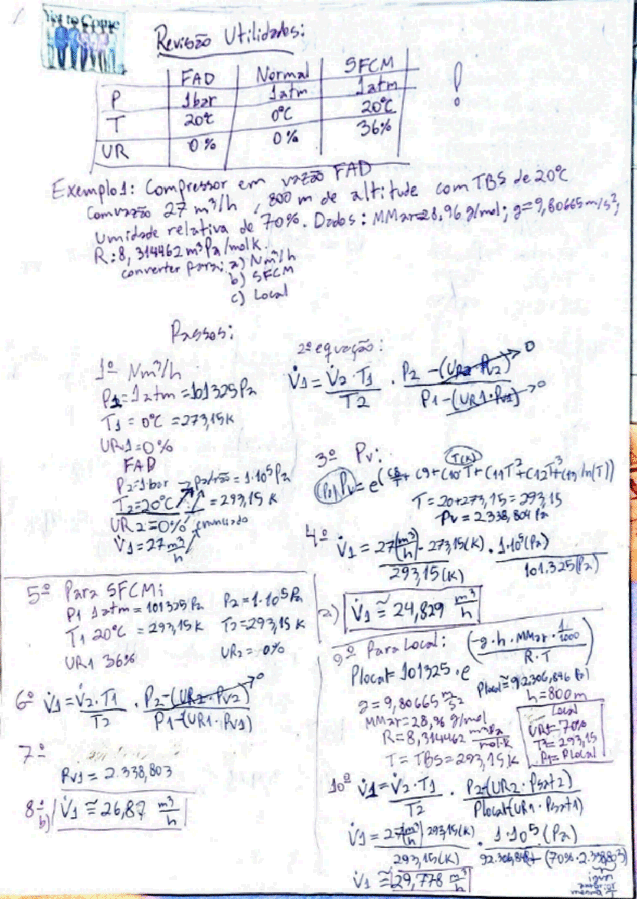 Revisão Utilidades:
FAD Normal SFCM
P 1bar 1atm 1atm
T 20°C 0°C 20°C
UR 0% 0% 36%
!
Exemplo1: Compressor em vazão FAD
com vazão 27 m³/h, 800 m de altitude com TBS de 20°C
Umidade relativa de 70%. Dados: MMar=28,96 g/mol; g=9,80665 m/s²,
R:8,314462 m³Pa/molK.
converter para: a) Nm³/h
b) SFCM
c) Local
Passos:
1º Nm³/h
P1=1atm=101325Pa
T1=0°C=273,15K
UR1=0%
FAD
P2=1bar → =1·10⁵Pa
T2=20°C =293,15K
UR2=0%
V̇1=27 m³/h
2ª equação:
V̇1 = V̇2·T1/T2 · P2-(UR2·PV2)→0/P1-(UR1·PV1)→0
3º Pv: T(K)
(Pa) Pv = e^(C8/T + C9+C10T+C11T²+C12T³+C13 ln(T))
T=20+273,15=293,15
Pv=2.338,804 Pa
4º V̇1 = 27(m³/h)·273,15(K)/293,15(K) · 1·10⁵(Pa)/101.325(Pa)
a) V̇1 ≅ 24,829 m³/h
5º Para SFCM:
P1 1atm=101325Pa P2=1·10⁵Pa
T1 20°C =293,15K T2=293,15K
UR1 36% UR2=0%
6º V̇1=V̇2·T1/T2 · P2-(UR2·PV2)→0/P1-(UR1·PV1)
7º
Pv1=2.338,803
8º b) V̇1 ≅ 26,87 m³/h
9º Para Local:
Plocal=101325·e^(-g·h·MMar·1/1000/R·T)
Plocal≅92.306,846 Pa
g=9,80665 m/s² h=800m
MMar=28,96 g/mol
R=8,314462 m³Pa/mol·K
T=TBS=293,15K
Local
UR1=70%
T1=293,15
P1=PLocal
10º V̇1=V̇2·T1/T2 · P2-(UR2·Psat2)/Plocal-(UR1·Psat1)
V̇1=27(m³/h)·293,15(K)/293,15(K) · 1·10⁵(Pa)/92.306,846-(70%·2.338,803)
V̇1≅29,778 m³/h